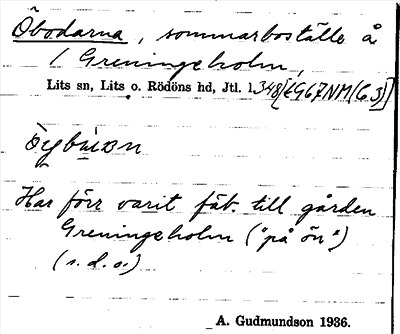 Öbodarna, sommarboställe å
Greningeholm,
Lits sn, Lits o. Rödöns hd, Jtl. l.
Har förr varit fäb. till gården
Greningeholm ("på ön")
(s. d. o.)
A. Gudmundson 1936.